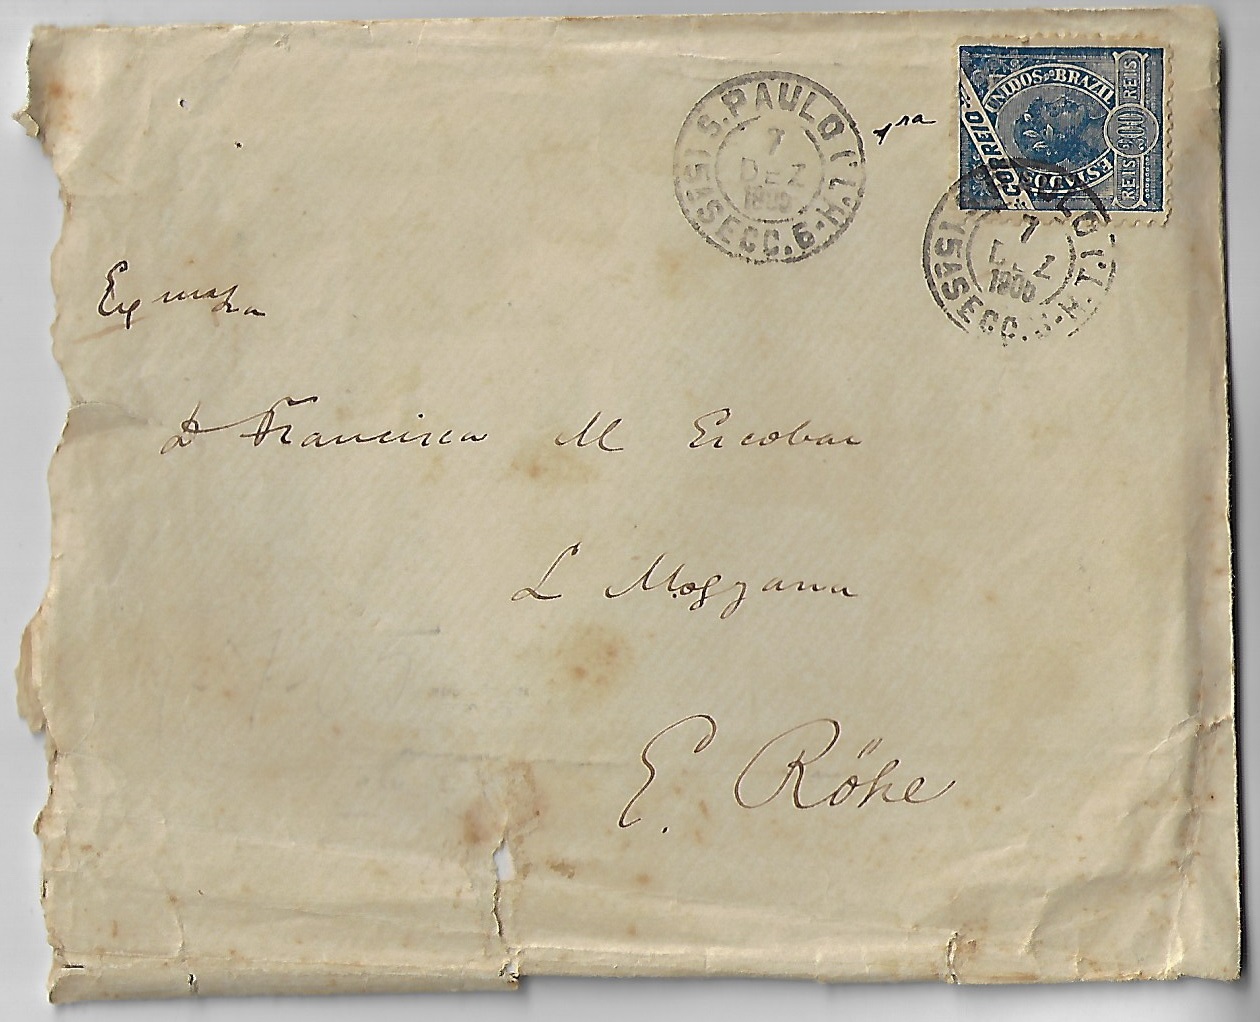 S. PAULO
7
DEZ
1T.
5ªSECC.6-H.
1ra
CORREIO
ESTADOS UNIDOS BRAZIL
REIS 200 REIS
7
DEZ
5ªSECC.
Exma Sra
D Francisca M Escobar
L Mogyana
E. Röhe